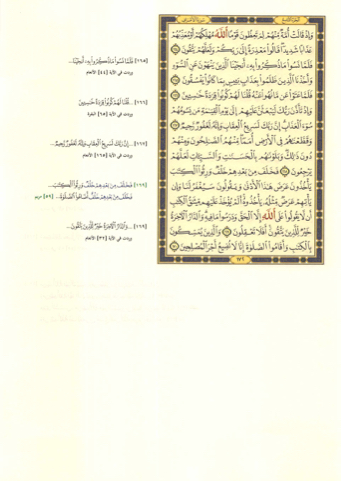 وَإِذْ قَالَتْ أُمَّةٌ مِّنْهُمْ لِمَ تَعِظُونَ قَوْمًا اللَّهُ مُهْلِكُهُمْ أَوْ مُعَذِّبُهُمْ
عَذَابًا شَدِيدًا قَالُوا مَعْذِرَةً إِلَىٰ رَبِّكُمْ وَلَعَلَّهُمْ يَتَّقُونَ
فَلَمَّا نَسُوا مَا ذُكِّرُوا بِهِ أَنجَيْنَا الَّذِينَ يَنْهَوْنَ عَنِ السُّوءِ
وَأَخَذْنَا الَّذِينَ ظَلَمُوا بِعَذَابٍ بَئِيسٍ بِمَا كَانُوا يَفْسُقُونَ
فَلَمَّا عَتَوْا عَن مَّا نُهُوا عَنْهُ قُلْنَا لَهُمْ كُونُوا قِرَدَةً خَاسِئِينَ
وَإِذْ تَأَذَّنَ رَبُّكَ لَيَبْعَثَنَّ عَلَيْهِمْ إِلَىٰ يَوْمِ الْقِيَامَةِ مَن يَسُومُهُمْ
سُوءَ الْعَذَابِ إِنَّ رَبَّكَ لَسَرِيعُ الْعِقَابِ وَإِنَّهُ لَغَفُورٌ رَّحِيمٌ
وَقَطَّعْنَاهُمْ فِي الْأَرْضِ أُمَمًا مِّنْهُمُ الصَّالِحُونَ وَمِنْهُمْ
دُونَ ذَٰلِكَ وَبَلَوْنَاهُم بِالْحَسَنَاتِ وَالسَّيِّئَاتِ لَعَلَّهُمْ
يَرْجِعُونَ فَخَلَفَ مِن بَعْدِهِمْ خَلْفٌ وَرِثُوا الْكِتَابَ
يَأْخُذُونَ عَرَضَ هَٰذَا الْأَدْنَىٰ وَيَقُولُونَ سَيُغْفَرُ لَنَا وَإِن
يَأْتِهِمْ عَرَضٌ مِّثْلُهُ يَأْخُذُوهُ أَلَمْ يُؤْخَذْ عَلَيْهِم مِّيثَاقُ الْكِتَابِ
أَن لَّا يَقُولُوا عَلَى اللَّهِ إِلَّا الْحَقَّ وَدَرَسُوا مَا فِيهِ وَالدَّارُ الْآخِرَةُ
خَيْرٌ لِّلَّذِينَ يَتَّقُونَ أَفَلَا تَعْقِلُونَ وَالَّذِينَ يُمَسِّكُونَ
بِالْكِتَابِ وَأَقَامُوا الصَّلَاةَ إِنَّا لَا نُضِيعُ أَجْرَ الْمُصْلِحِينَ
١٧٢
[١٦٥] فَلَمَّا نَسُوا مَا ذُكِّرُوا بِهِ أَنجَيْنَا...
وردت في الآية [٤٤] الأنعام
[١٦٦] ... قُلْنَا لَهُمْ كُونُوا قِرَدَةً خَاسِئِينَ
وردت في الآية [٦٥] البقرة
[١٦٧] ...إِنَّ رَبَّكَ لَسَرِيعُ الْعِقَابِ وَإِنَّهُ لَغَفُورٌ رَّحِيمٌ
وردت في الآية [١٦٥] الأنعام
[١٦٩] فَخَلَفَ مِن بَعْدِهِمْ خَلْفٌ وَرِثُوا الْكِتَابَ...
فَخَلَفَ مِن بَعْدِهِمْ خَلْفٌ أَضَاعُوا الصَّلَاةَ... [٥٩] مريم
[١٦٩] ...وَالدَّارُ الْآخِرَةُ خَيْرٌ لِّلَّذِينَ يَتَّقُونَ...
وردت في الآية [٣٢] الأنعام